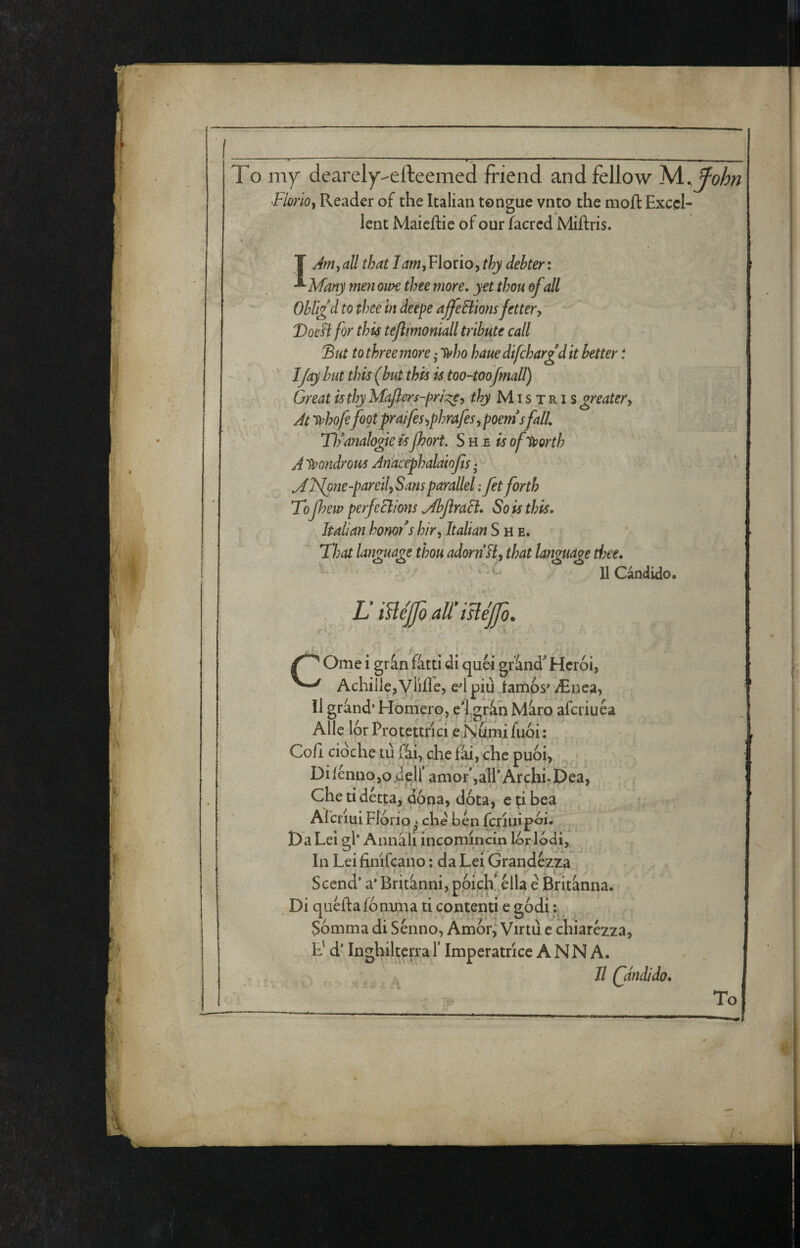 To my dearely-esteemed friend and fellow M. John
Florio, Reader of the Italian tongue vnto the most Excel-
lent Maiestie of our sacred Mistris.
I Am, all that I am, Florio, thy debter:
Many men owe thee more. yet thou of all
Oblig'd to thee in deepe affections fetter,
Doest for this testimoniall tribute call
But to three more; who haue discharg'd it better:
I say but this (but this is too-too small)
Great is thy Masters-prize, thy MISTRIS greater,
At whose foot praises, phrases, poem's fall.
Th'analogie is short. SHE is of worth
A wondrous Anacephalaiosis;
A None-pareil, Sans parallel: set forth
To shew perfections Abstract. So is this.
Italian honor's hir, Italian SHE.
That language thou adorn'st, that language thee.
Il Cándido.
L' istésso all' istésso.
COme i grán fátti di quéi gránd' Herói,
Achille, Vlisse, e'l più famós' Ænea,
Il gránd' Homero, e'l grán Máro ascriuéa
Alle lór Protettríci e Númi suói:
Cosi ciòche tù fái, che fái, che puói,
Di sénno, o dell' amor', all' Archi-Dea,
Che ti détta, dóna, dóta, e ti bea
Ascríui Flório; chè bén scríui pói.
Da Lei gl' Annáli incomíncin lór lódi,
In Lei finíscano: da Lei Grandézza
Scend' a' Británni, póich' élla è Británna.
Di quésta sómma ti contenti e gódi:
Sómma di Sénno, Amór, Virtù e chiarézza,
E' d' Inghilterra l' Imperatríce ANNA.
Il Cándido.
To